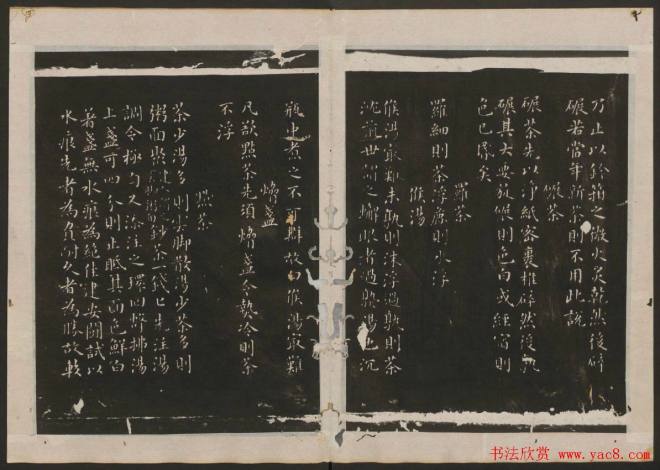 乃止以鈐箝之微火炙乾然後碎
碾若當年新茶則不用此說
碾茶
碾茶先以淨紙密裹搥碎然後熟
碾其大要旋碾則色白或經宿則
色已昏矣
羅茶
羅細則茶浮麤則水浮
候湯
候湯最難未熟則沫浮過熟則茶
沈前世謂之蟹眼者過熟湯也沉
瓶中煮之不可辯故曰候湯最難
熁盞
凡欲點茶先須熁盞令熱冷則茶
不浮
點茶
茶少湯多則雲脚散湯少茶多則
粥面聚鈔茶一錢匕先注湯
調令極勻又添注之環回擊拂湯
上盞可四分則止眡其面色鮮白
著盞無水痕為絕佳建安鬬試以
水痕先者為負耐久者為勝故較
书法欣赏
www.yac8.com